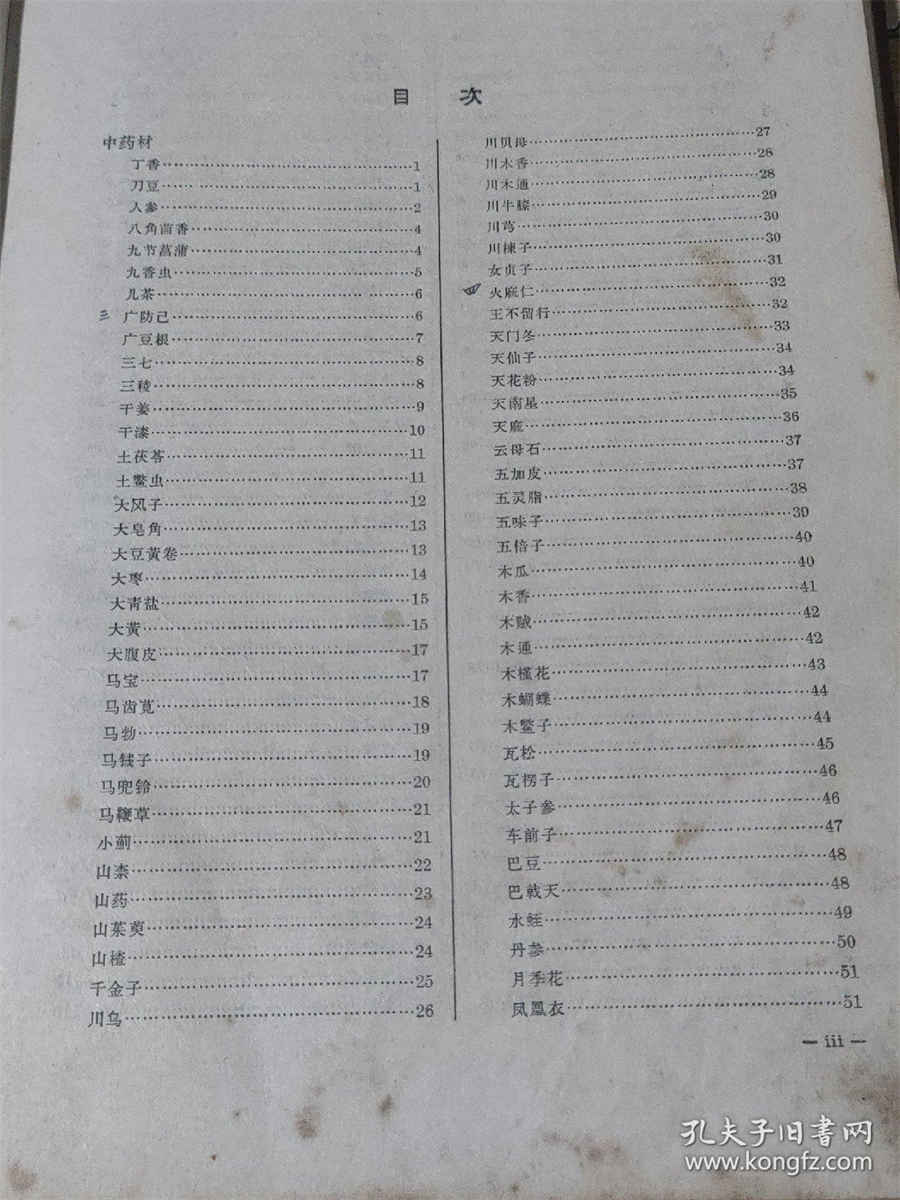 目 次
中药材
丁香……1
刀豆……1
人参……2
八角茴香……4
九节菖蒲……4
九香虫……5
儿茶……6
三 广防己……6
广豆根……7
三七……8
三稜……8
干姜……9
干漆……10
土茯苓……11
土鳖虫……11
大风子……12
大皂角……13
大豆黄卷……13
大枣……14
大青盐……15
大黄……15
大腹皮……17
马宝……17
马齿苋……18
马勃……19
马钱子……19
马兜铃……20
马鞭草……21
小蓟……21
山柰……22
山药……23
山茱萸……24
山楂……24
千金子……25
川乌……26
川贝母……27
川木香……28
川木通……28
川牛膝……29
川芎……30
川楝子……30
女贞子……31
四 火麻仁……32
王不留行……32
天门冬……33
天仙子……34
天花粉……34
天南星……35
天麻……36
云母石……37
五加皮……37
五灵脂……38
五味子……39
五倍子……40
木瓜……40
木香……41
木贼……42
木通……42
木槿花……43
木蝴蝶……44
木鳖子……44
瓦松……45
瓦楞子……46
太子参……46
车前子……47
巴豆……48
巴戟天……48
水蛭……49
丹参……50
月季花……51
凤凰衣……51
— iii —
孔夫子旧书网
www.kongfz.com